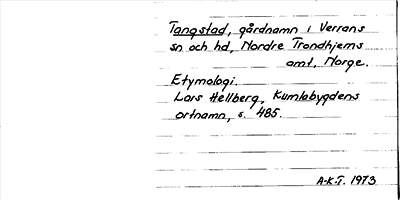 Tangstad, gårdnamn i Verrans
sn och hd, Nordre Trondhjems
amt, Norge.
Etymologi.
Lars Hellberg, Kumlabygdens
ortnamn, s. 485.
A-K.T. 1973